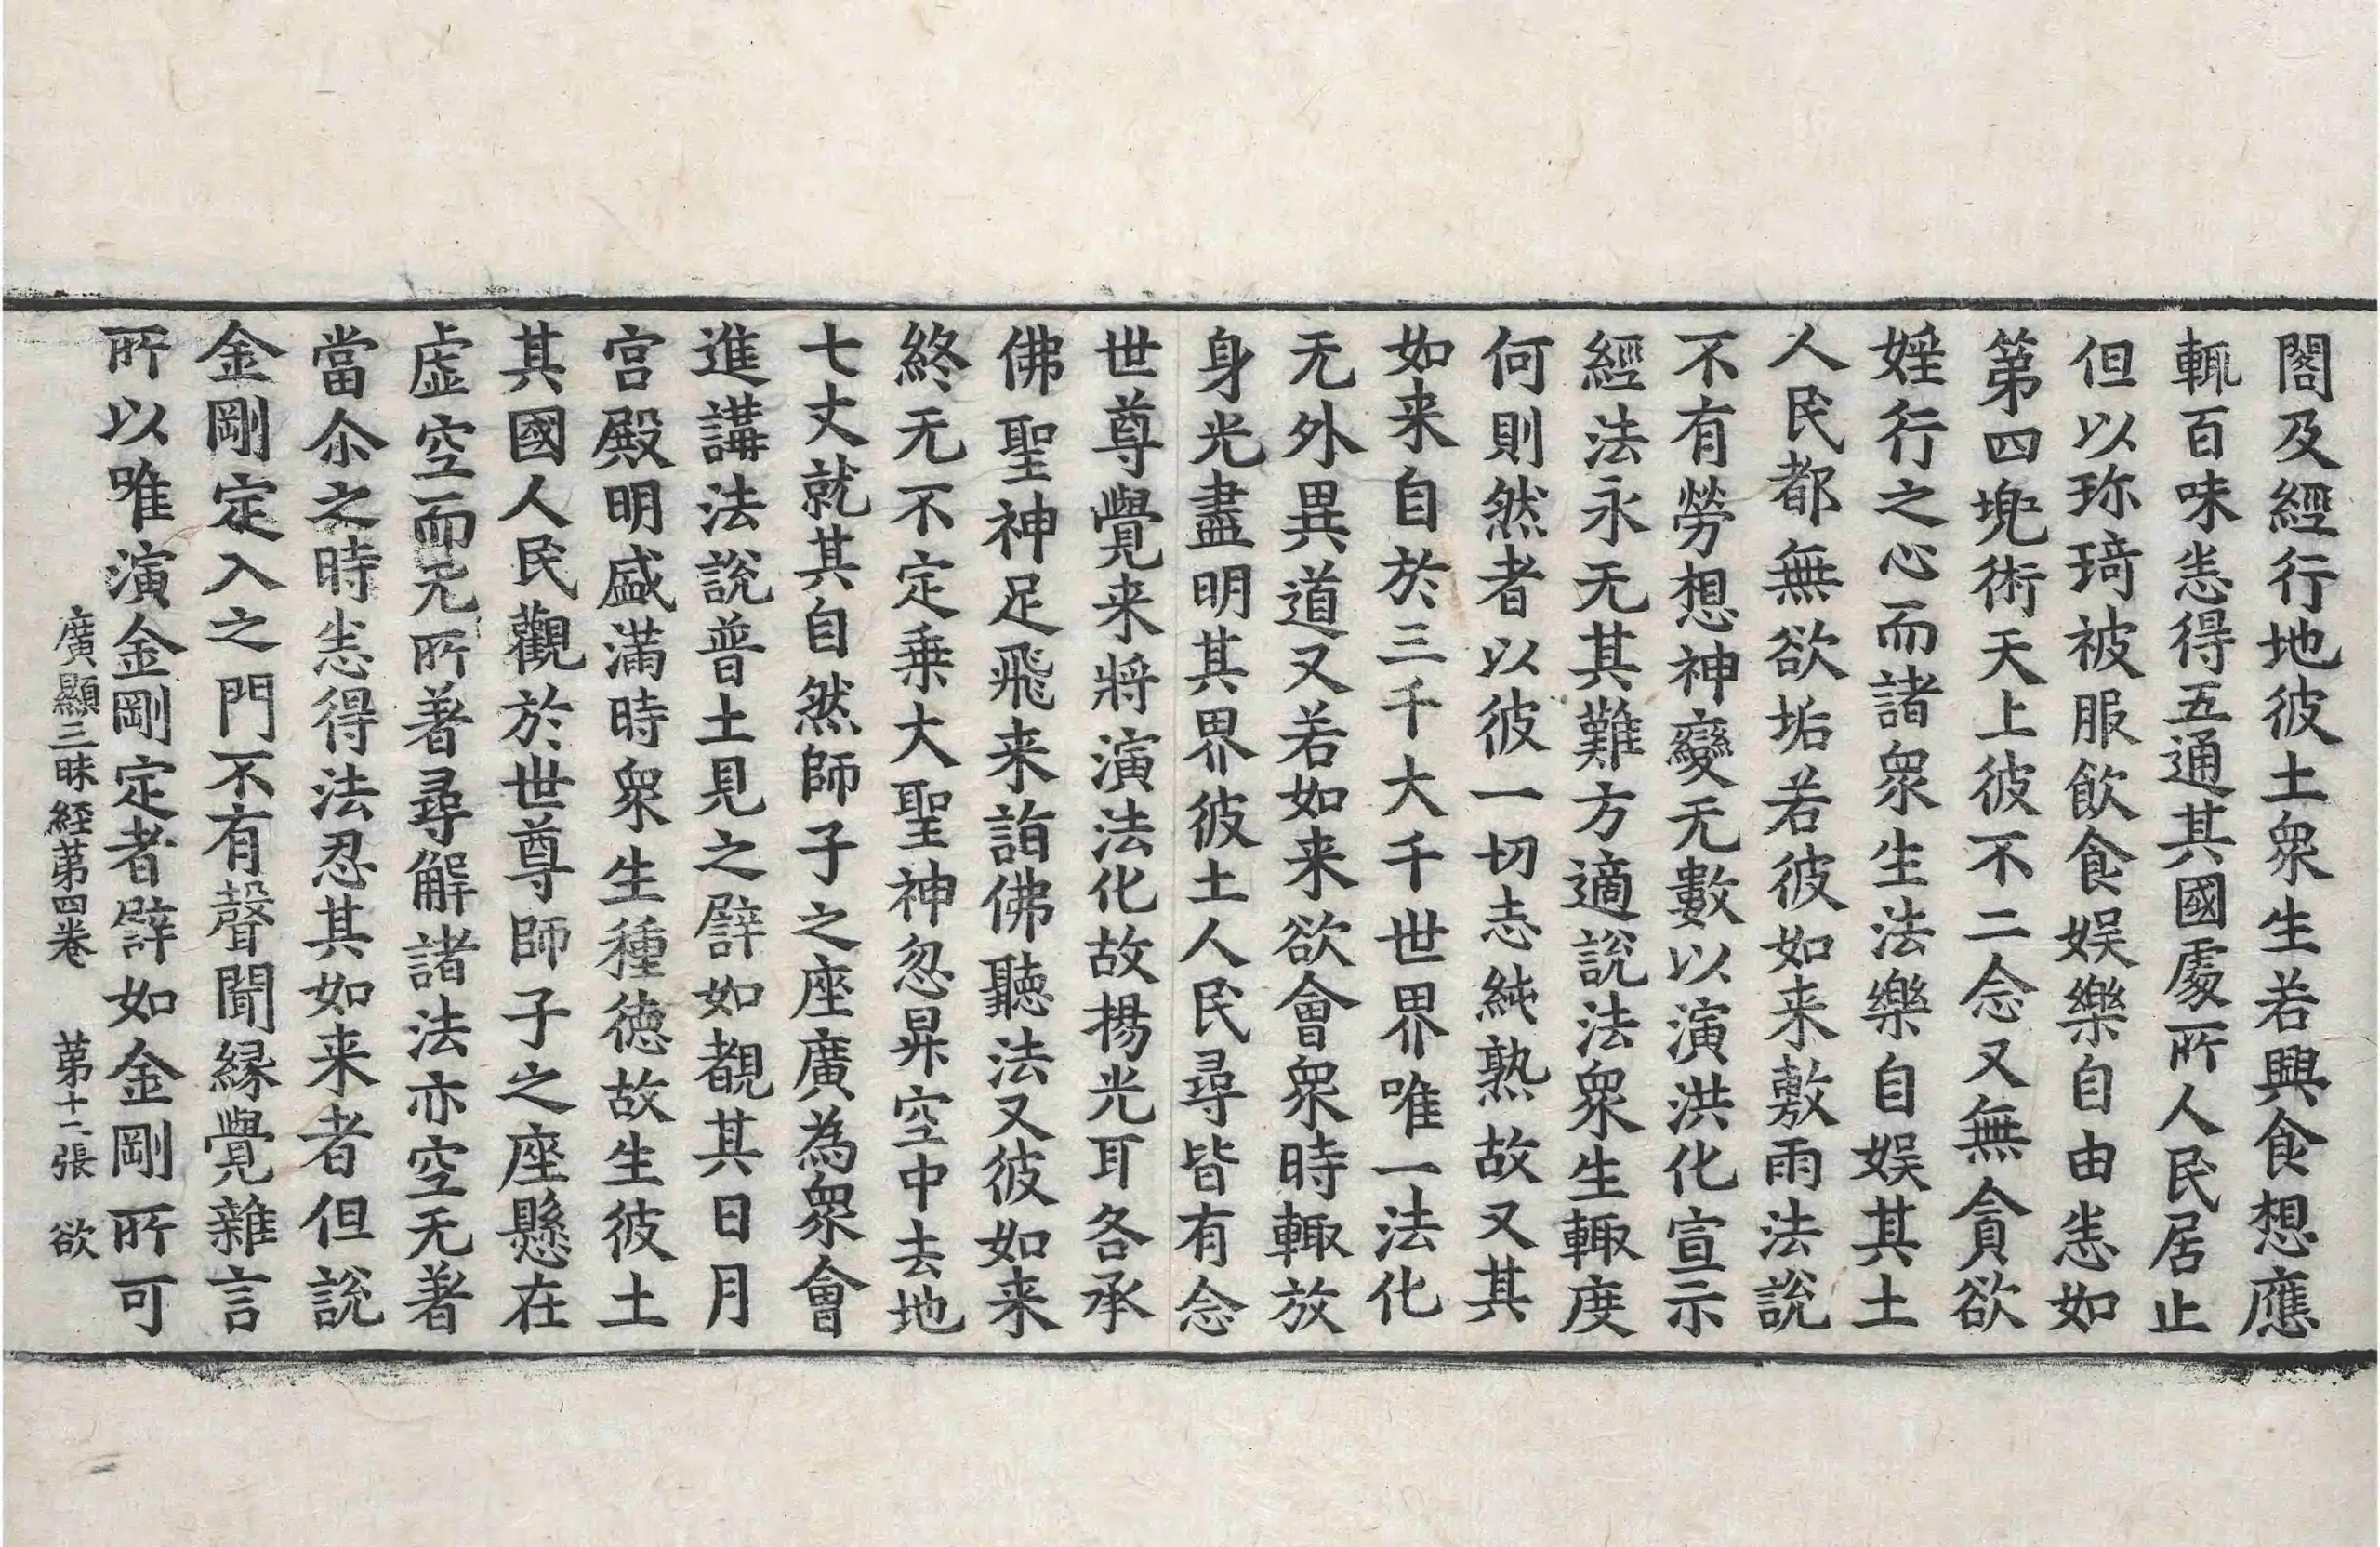 閣及經行地彼土衆生若興食想應
輒百味恙得五通其國處所人民居止
但以珎琦被服飲食娱樂自由恙如
第四兠術天上彼不二念又無貪欲
婬行之心而諸衆生法樂自娱其土
人民都無欲垢若彼如来敷雨法說
不有勞想神變无數以演洪化宣示
經法永无其難方適說法衆生輙度
何則然者以彼一切志純熟故又其
如来自於三千大千世界唯一法化
无外異道又若如来欲會衆時輙放
身光盡明其界彼土人民尋皆有念
世尊覺来將演法化故揚光耳各承
佛聖神足飛来詣佛聽法又彼如来
終无不定乗大聖神忽昇空中去地
七丈就其自然師子之座廣為衆會
進講法說普土見之譬如覩其日月
宫殿明盛滿時衆生種德故生彼土
其國人民觀於世尊師子之座懸在
虛空而无所著尋解諸法亦空无著
當尒之時恙得法忍其如来者但說
金剛定入之門不有聲聞縁覺雜言
所以唯演金剛定者譬如金剛所可
廣顯三昧經第四卷 第十二張 欲